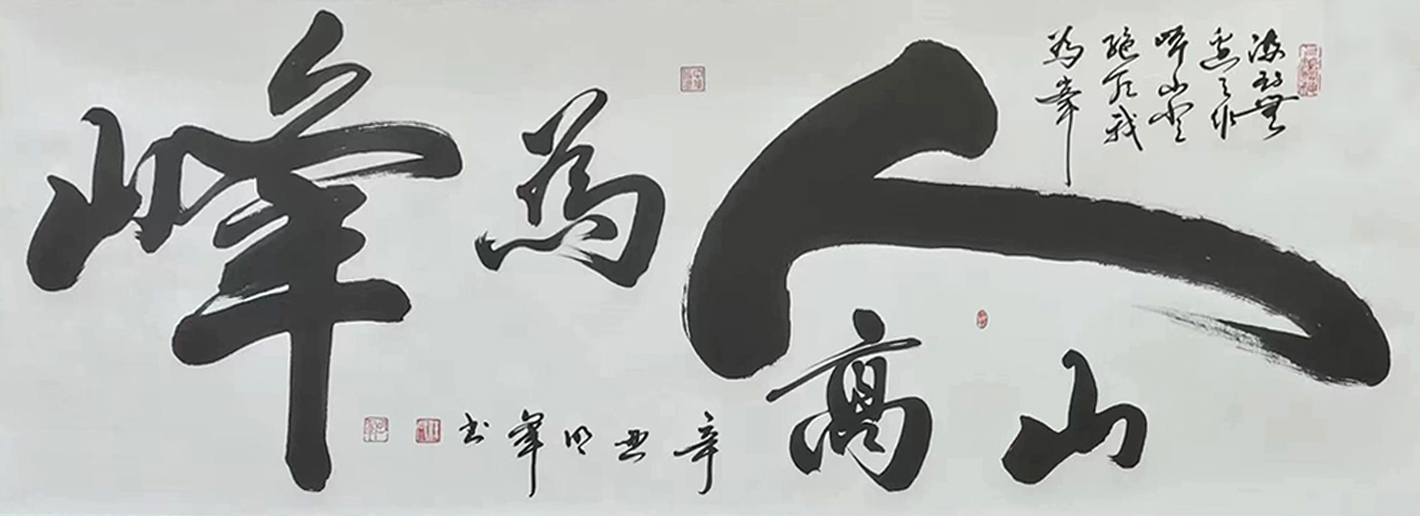 海到無
邊天作
岸山登
絕頂我
為峯
山高人為峰
辛丑明峯书